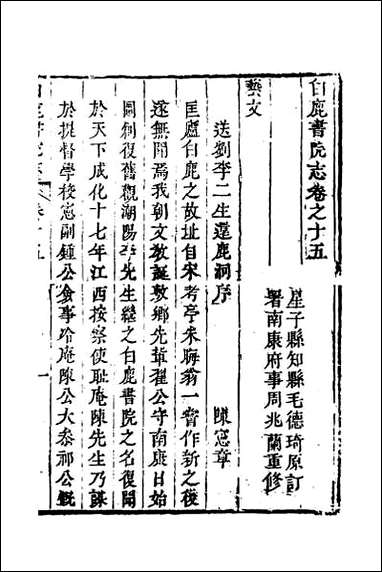 白鹿書院志卷之十五
星子縣知縣毛德琦原訂
署南康府事周兆蘭重修
藝文
送劉李二生還鹿洞序 陳憲章
匡廬白鹿之故址自宋考亭朱晦翁一嘗作新之後
遂無聞焉我朝文教誕敷鄉先輩翟公守南康日始
圖剏復舊觀潮陽李先生繼之白鹿書院之名復聞
於天下成化十七年江西按察使耻庵陳先生乃謀
於提督學校憲副鍾公僉事冷庵陳公大叅祁公旣
白鹿書院志 卷十五 一